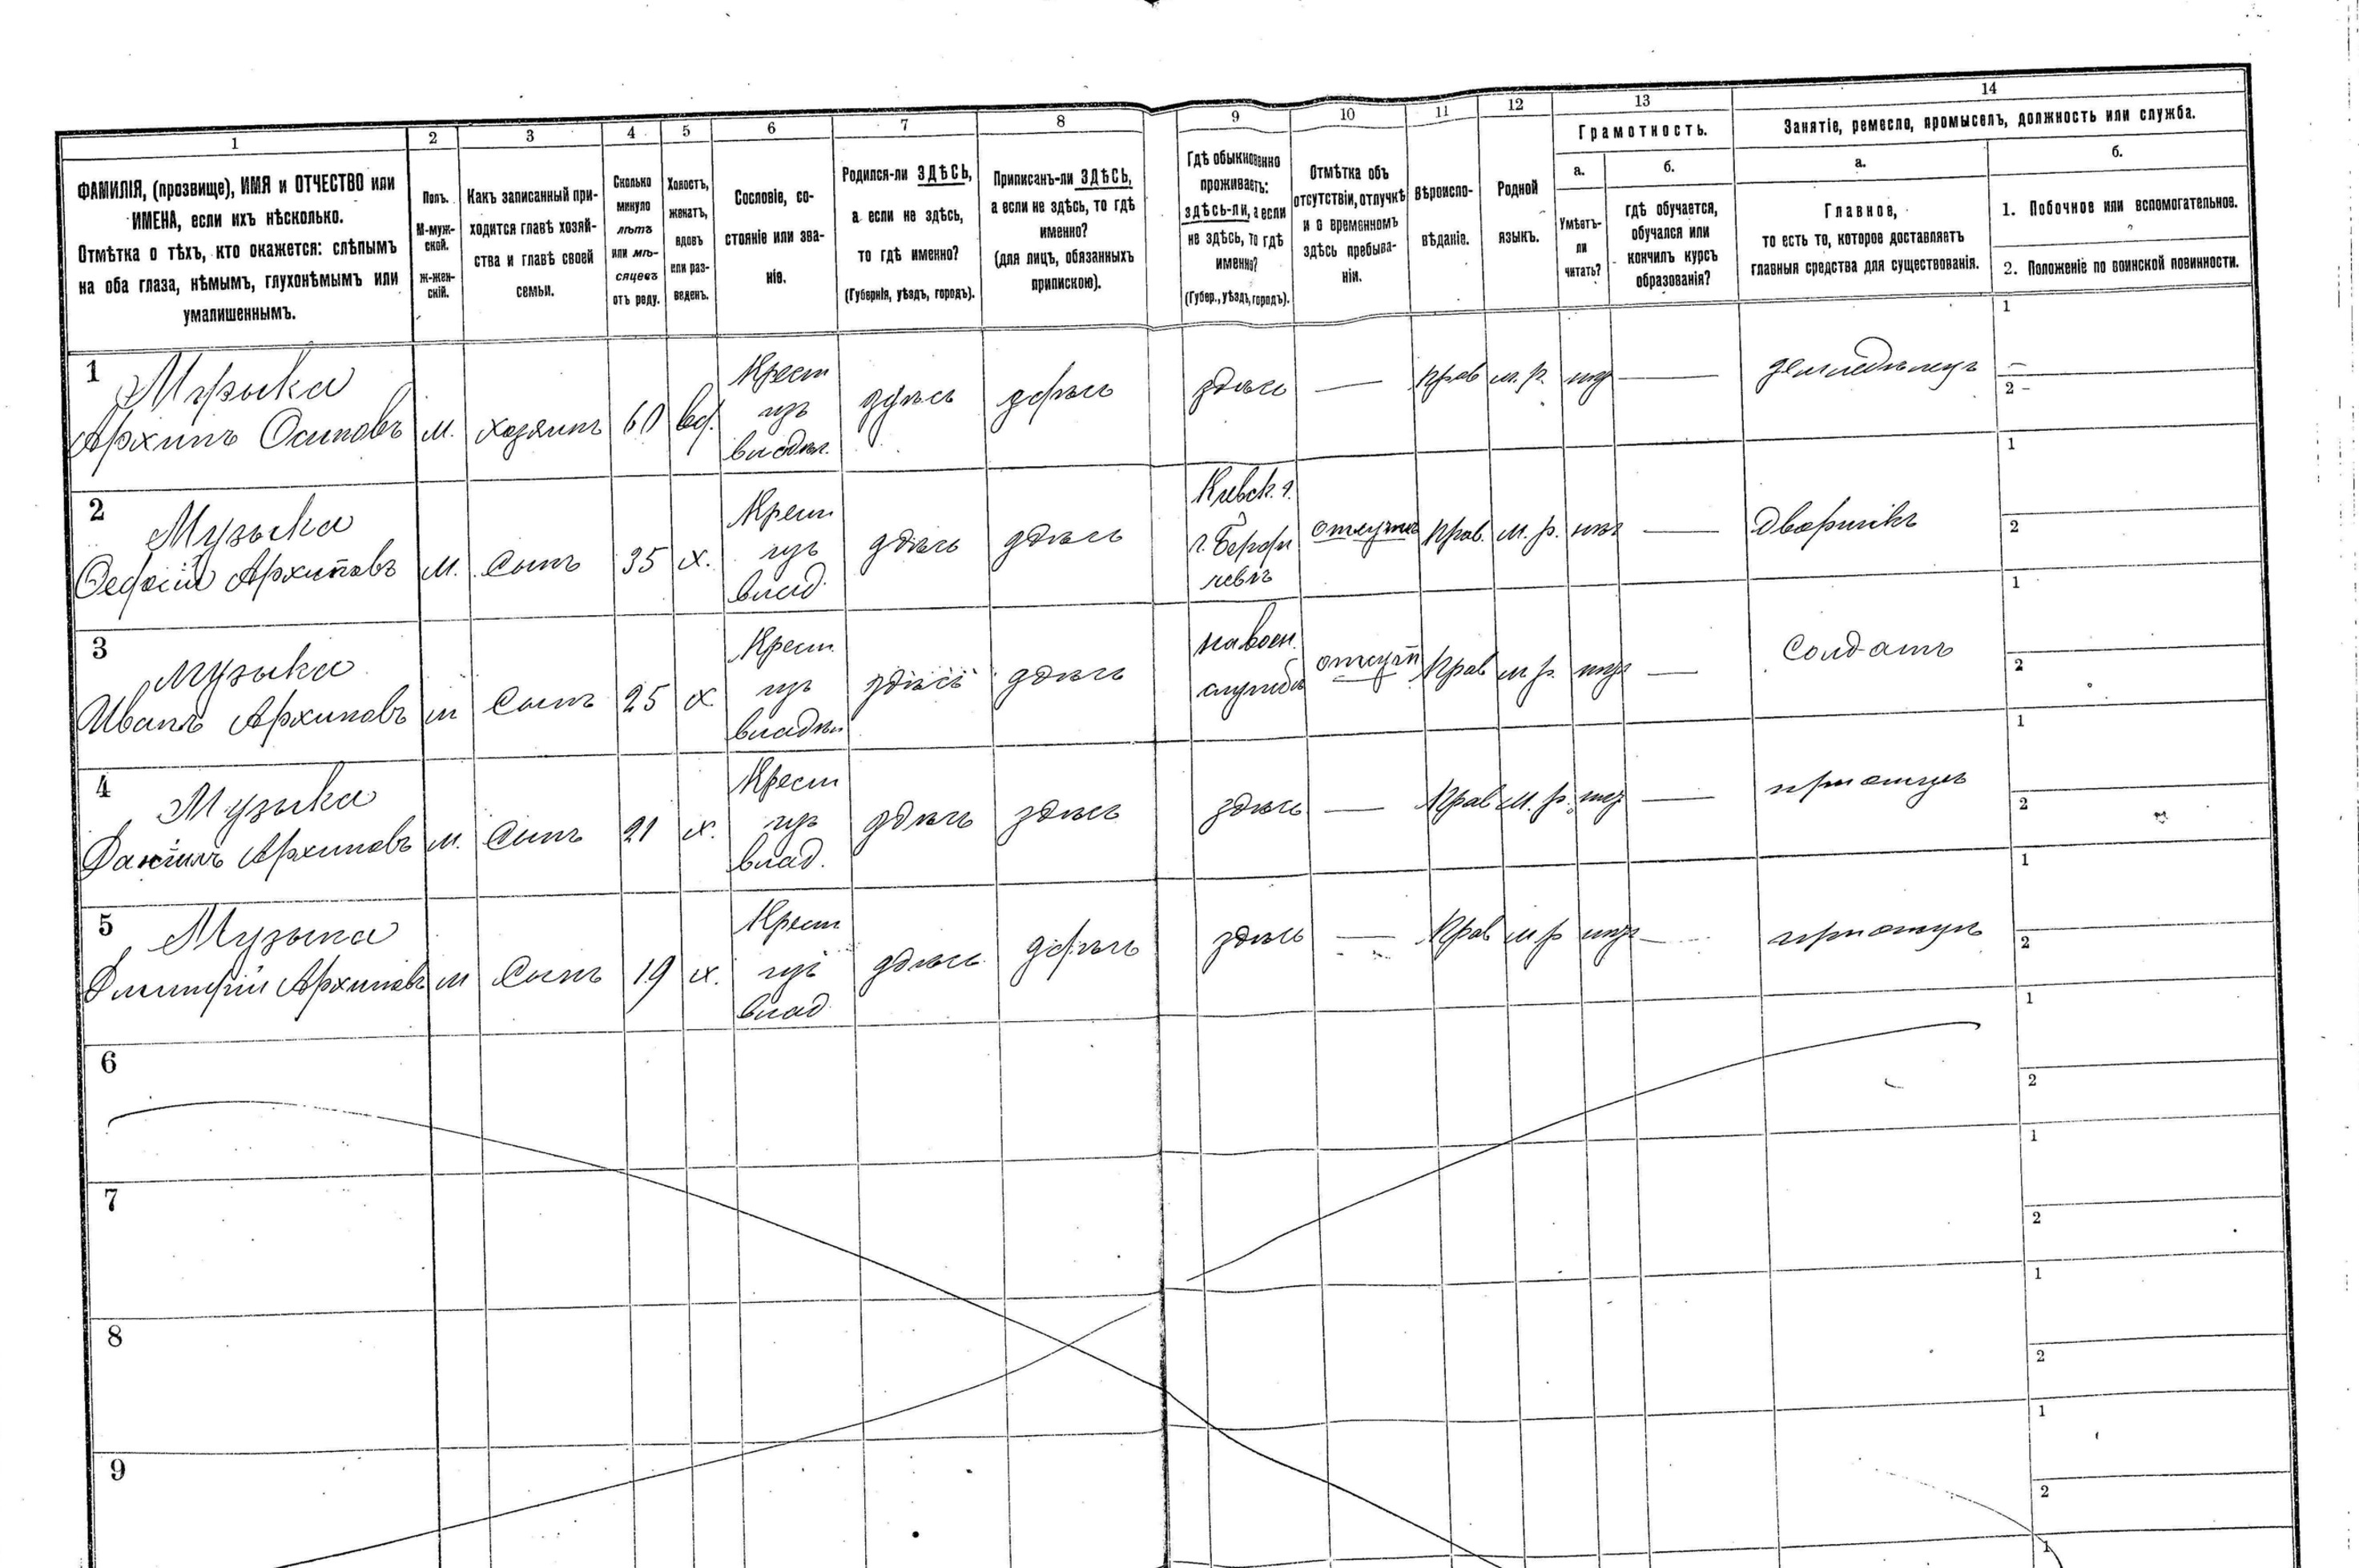 1
2
3
4
5
6
7
8
9
10
11
12
13
14
ФАМИЛІЯ, (прозвище), ИМЯ и ОТЧЕСТВО или
ИМЕНА, если ихъ нѣсколько.
Отмѣтка о тѣхъ, кто окажется: слѣпымъ
на оба глаза, нѣмымъ, глухонѣмымъ или
умалишеннымъ.
Полъ.
М-муж-
ской.
Ж-жен-
скій.
Какъ записанный при-
ходится главѣ хозяй-
ства и главѣ своей
семьи.
Сколько
минуло
лѣтъ
или мѣ-
сяцевъ
отъ роду.
Холостъ,
женатъ,
вдовъ
или раз-
веденъ.
Сословіе, со-
стояніе или зва-
ніе.
Родился-ли ЗДѢСЬ,
а если не здѣсь,
то гдѣ именно?
(Губернія, уѣздъ, городъ).
Приписанъ-ли ЗДѢСЬ,
а если не здѣсь, то гдѣ
именно?
(для лицъ, обязанныхъ
припискою).
Гдѣ обыкновенно
проживаетъ:
здѣсь-ли, а если
не здѣсь, то гдѣ
именно?
(Губер., уѣздъ, городъ).
Отмѣтка объ
отсутствіи, отлучкѣ
и о временномъ
здѣсь пребыва-
ніи.
Вѣроиспо-
вѣданіе.
Родной
языкъ.
Грамотность.
а.
Умѣетъ-
ли
читать?
б.
гдѣ обучается,
обучался или
кончилъ курсъ
образованія?
Занятіе, ремесло, промыселъ, должность или служба.
а.
Главное,
то есть то, которое доставляетъ
главныя средства для существованія.
б.
1. Побочное или вспомогательное.
2. Положеніе по воинской повинности.
1
Музыка
Архипъ Осиповъ
м.
хозяинъ
60
вд.
Крест
изъ
владѣл.
здѣсь
здѣсь
здѣсь
—
прав
м. р.
нѣт
—
земледѣлецъ
1
2
2
Музыка
Ѳедосій Архиповъ
м.
Сынъ
35
х.
Крест
изъ
влад
здѣсь
здѣсь
Кіевск. г.
г. Берди
чевѣ
отлучкѣ
Прав.
м. р.
нѣт
—
Дворникъ
1
2
3
Музыка
Иванъ Архиповъ
м
Сынъ
25
х
Крест
изъ
владѣл
здѣсь
здѣсь
на воен.
службѣ
Прав
м р.
нѣт
—
Солдатъ
1
2
4
Музыка
Даніилъ Архиповъ
м.
Сынъ
21
х.
Крест
изъ
влад.
здѣсь
здѣсь
здѣсь
—
Прав
м. р.
нѣт
—
1
2
5
Музыка
Дмитрій Архиповъ
м
Сынъ
19
х.
Крест
изъ
влад
здѣсь
здѣсь
здѣсь
—
Прав
м р
нѣт
—
1
2
6
1
2
7
1
2
8
1
2
9
1
2
1